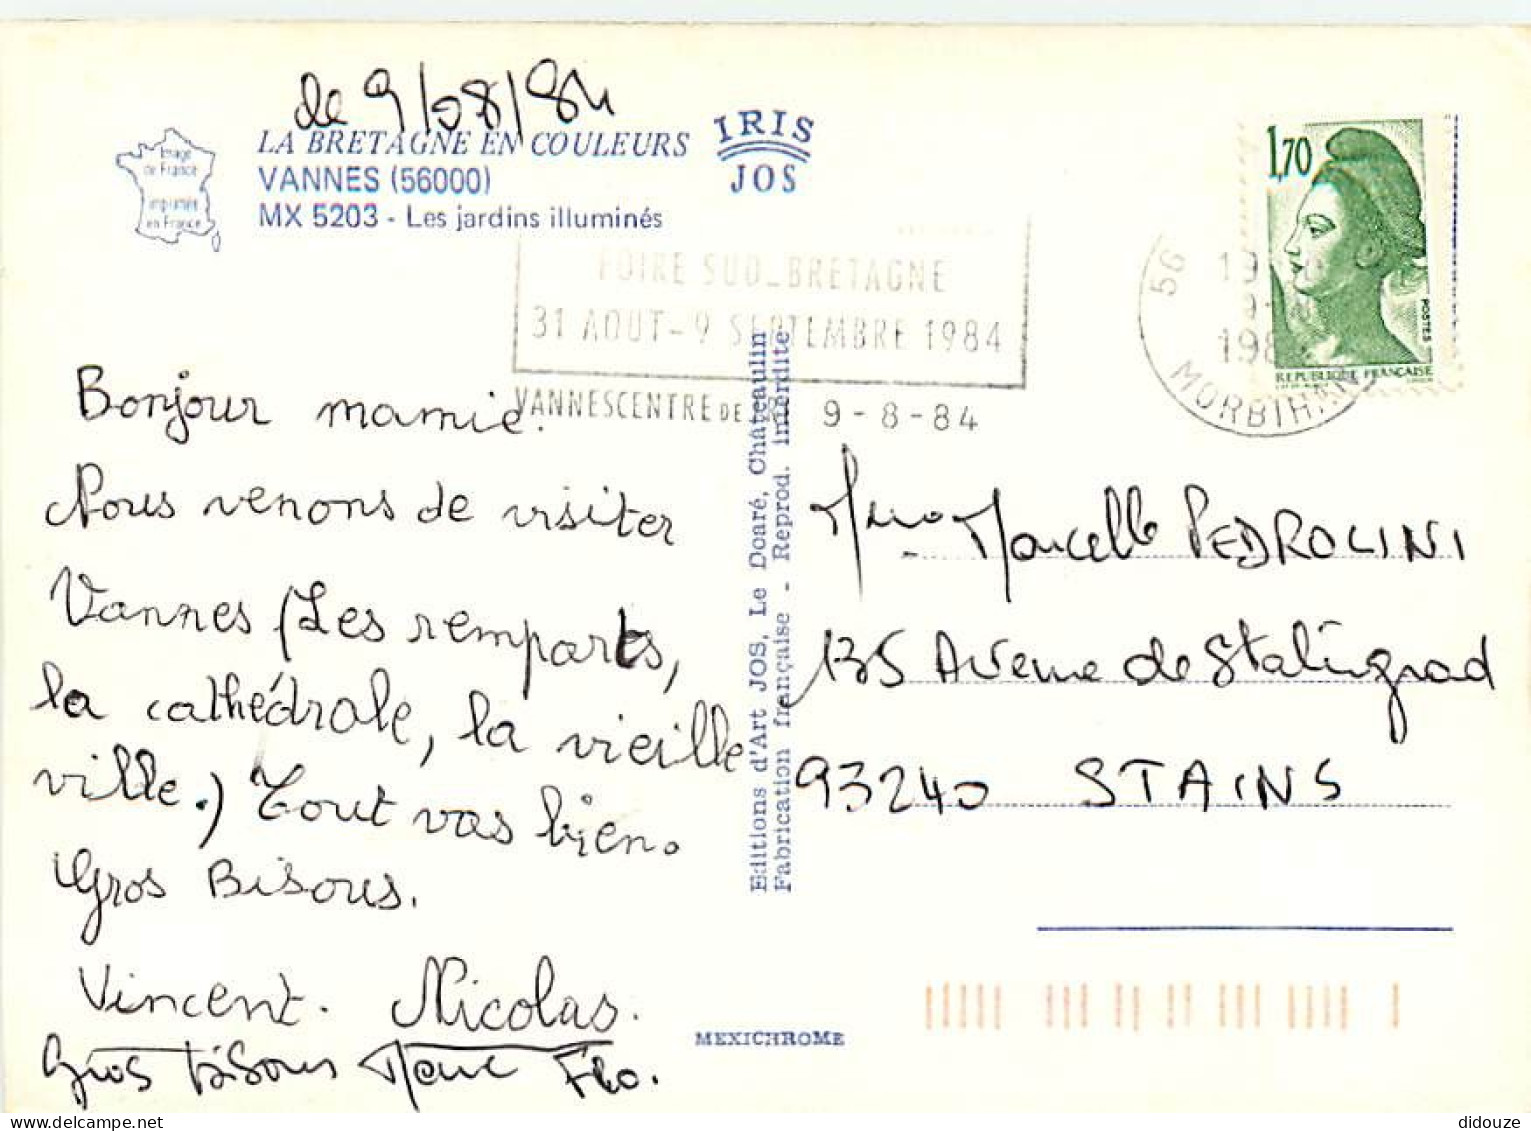 le 9/08/84
LA BRETAGNE EN COULEURS
VANNES (56000)
MX 5203 - Les jardins illuminés
Image
de France
imprimée
en France
IRIS
JOS
1,70
POSTES
REPUBLIQUE FRANÇAISE
FOIRE SUD-BRETAGNE
31 AOUT - 9 SEPTEMBRE 1984
VANNES CENTRE DE TRI 9-8-84
56
MORBIHAN
Bonjour mamie.
Nous venons de visiter
Vannes (Les remparts,
la cathédrale, la vieille
ville.) Tout vas bien.
Gros Bisous.
Vincent. Nicolas.
Gros bisous Marc Flo.
Editions d'Art JOS, Le Doaré, Châteaulin
Fabrication française - Reprod. interdite
Mme Marcelle PEDROLINI
135 Avenue de Stalingrad
93240 STAINS
MEXICHROME
didouze